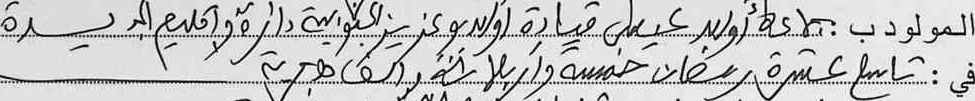 المولود ب: جماعة أولاد عيسى قيادة أولاد بوعزيز الجنوبية دائرة وإقليم الجديدة
في: تاسع عشرة رمضان خمسة وأربعمائة وألف هجرية